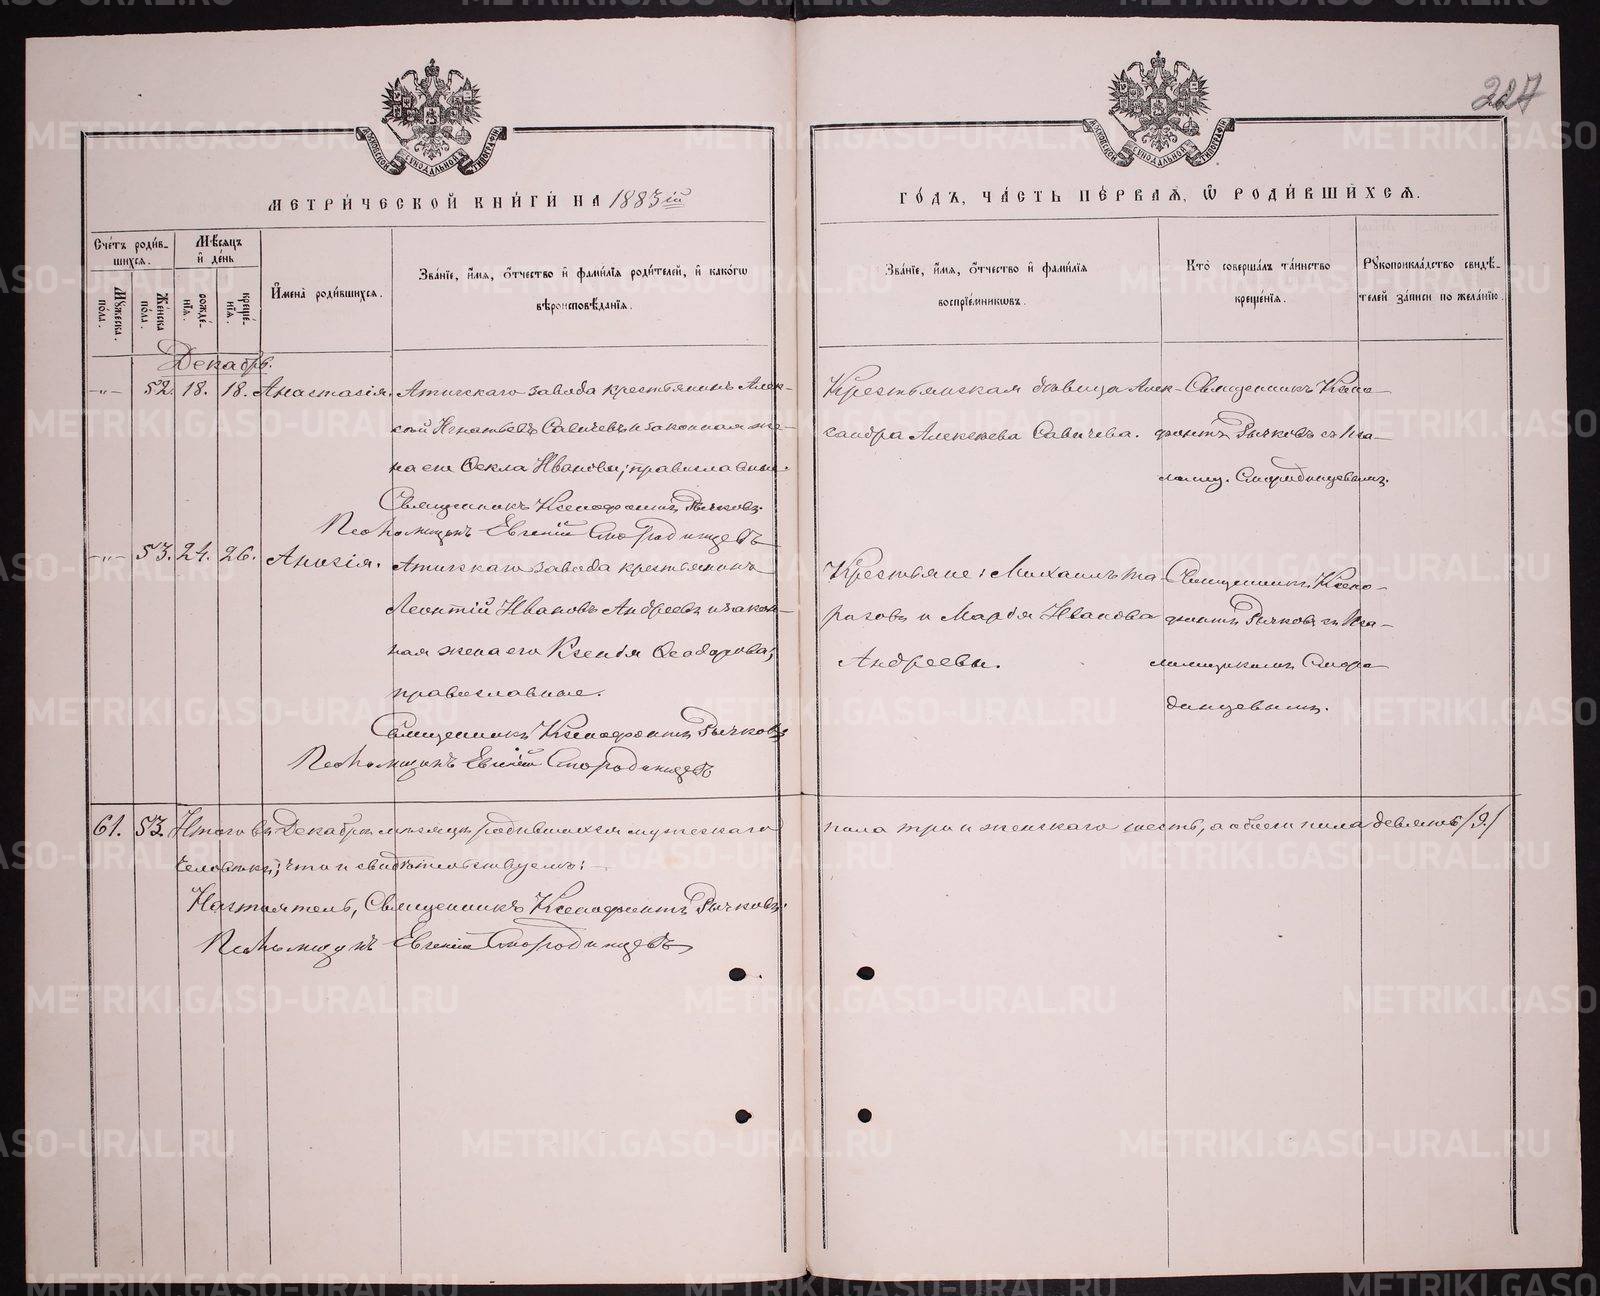 227
МОСКОВСКОЙ СѴНОДАЛЬНОЙ ТИПОГРАФІИ
МОСКОВСКОЙ СѴНОДАЛЬНОЙ ТИПОГРАФІИ
МЕТРИ́ЧЕСКОЙ КНИ́ГИ НА 1883ій
ГО́ДЪ, ЧА́СТЬ ПЕ́РВАЯ, Ѽ РОДИ́ВШИХСЯ.
Сче́тъ роди́в-
шихся.
Мѣ́сяцъ
и де́нь
Мꙋжеска по́ла.
Же́нска по́ла.
рожде́-нїѧ.
креще́-нїѧ.
И҆мена̀ роди́вшихся.
Зва́нїе, и҆́мя, ѻ҆́тчество и҆ фами́лїя роди́телей, и҆ како́гѡ
вѣроисповѣ́данїя.
Зва́нїе, и҆́мя, ѻ҆́тчество и҆ фами́лїя
воспрїе́мниковъ.
Кто̀ соверша́лъ та́инство
креще́нїя.
Рꙋкоприкла́дство свидѣ́-
телей за́писи по жела́нїю.
Декабрь.
-„- 52. 18. 18. Анастасія. Атигскаго завода крестьянинъ Алек-
сѣй Игнатьевъ Савичевъ и законная же-
на его Ѳекла Иванова; православные.
Священникъ Ксенофонтъ Рычковъ.
Псаломщикъ Евгеній Смородинцевъ
Крестьянская дѣвица Алек-
сандра Алексѣева Савичева.
Священникъ Ксено-
фонтъ Рычковъ съ Пса-
ломщ. Смородинцевымъ.
-„- 53. 24. 26. Анисія. Атигскаго завода крестьянинъ
Леонтій Ивановъ Андреевъ и закон-
ная жена его Ксенія Ѳеодорова;
православные.
Священникъ Ксенофонтъ Рычковъ
Псаломщикъ Евгеній Смородинцевъ
Крестьяне: Михаилъ
и Марія Иванова
Андреевы.
Священникъ Ксено-
фонтъ Рычковъ съ Пса-
ломщикомъ Сморо-
динцевымъ.
61. 53. Итого въ Декабрѣ мѣсяцѣ родившихся мужескаго
пола три и женскаго шесть, а обоего пола девять /9/
человѣкъ; что и свидѣтельствуемъ: —
Настоятель, Священникъ Ксенофонтъ Рычковъ.
Псаломщикъ Евгеній Смородинцевъ
METRIKI.GASO-URAL.RU